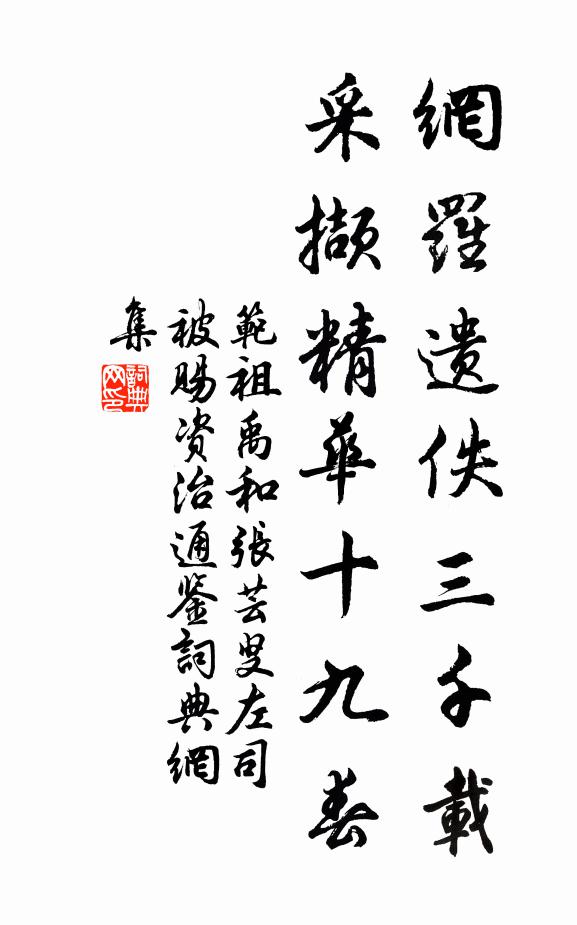 網羅遺佚三千載
采擷精華十九春
範祖禹和張芸叟左司
被賜资治通鉴詞典網
集
詞典
网印